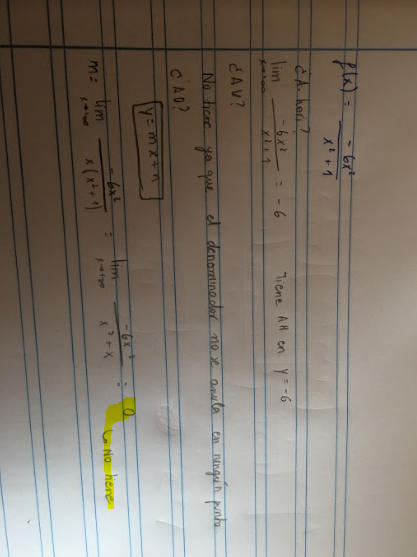 f(x) = -6x² / x²+1
¿A. hori?
lim x→+∞ -6x² / x²+1 = -6 Tiene AH en y=-6
¿AV?
No tiene ya que el denominador no se anula en ningún punto
¿AO?
y=mx+n
m= lim x→+∞ -6x² / x(x²+1) = lim x→+∞ -6x² / x³+x = 0
↳ No tiene